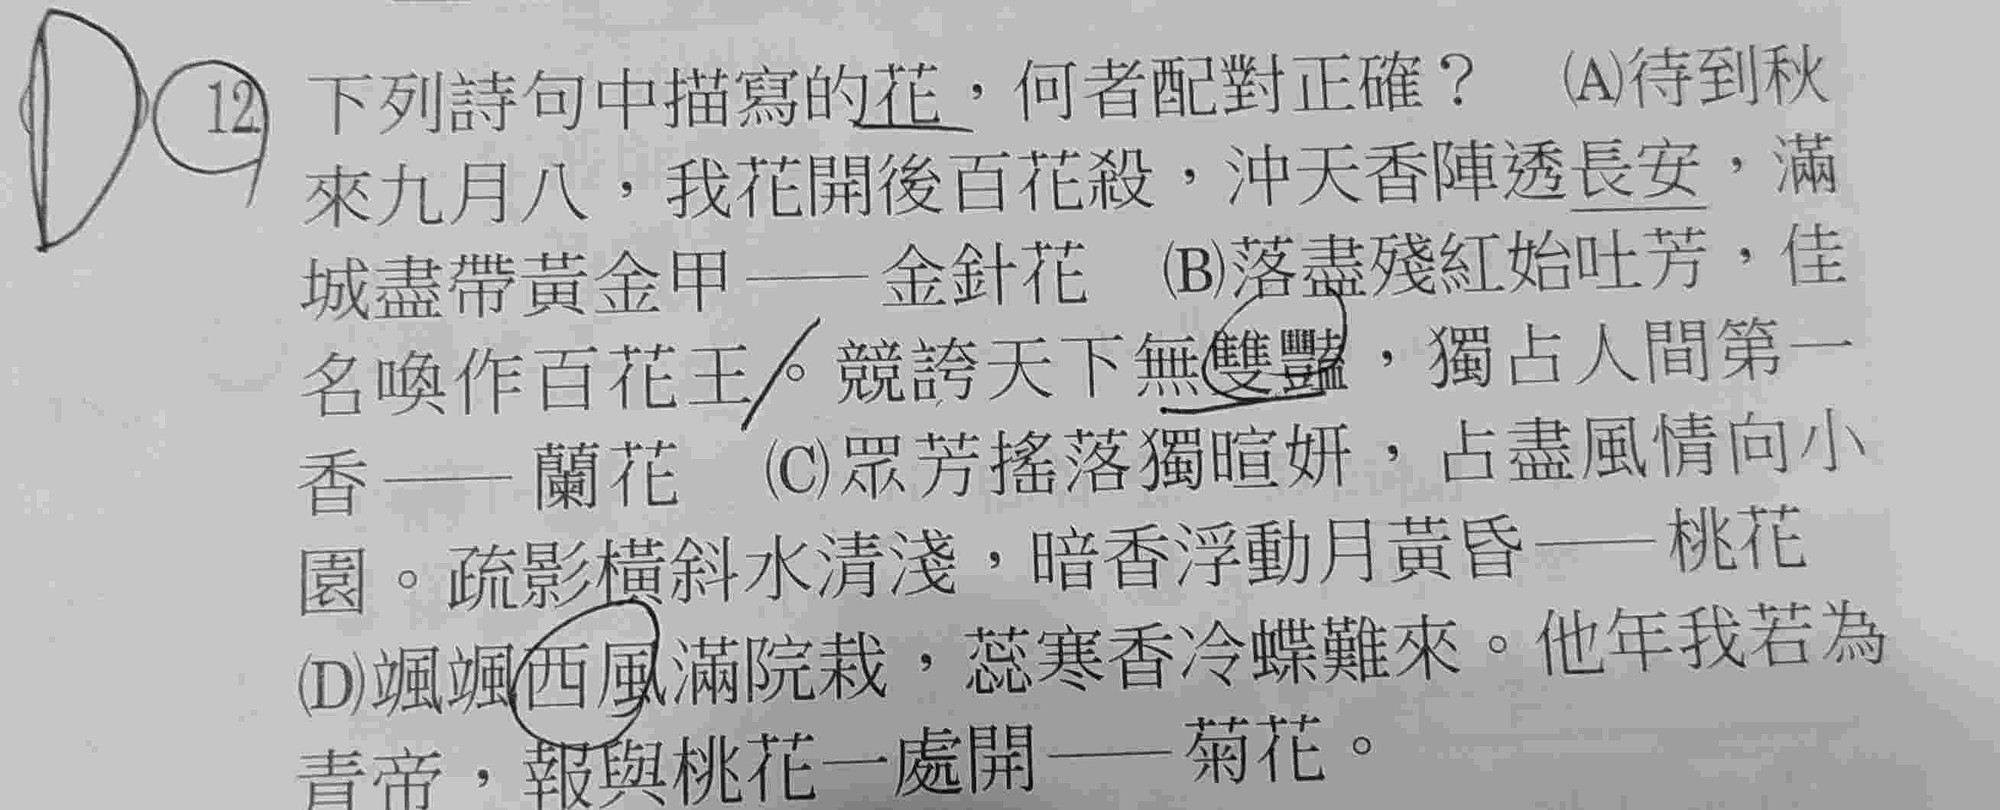 D 12 下列詩句中描寫的花，何者配對正確？ (A)待到秋
來九月八，我花開後百花殺，沖天香陣透長安，滿
城盡帶黃金甲——金針花 (B)落盡殘紅始吐芳，佳
名喚作百花王。競誇天下無雙豔，獨占人間第一
香——蘭花 (C)眾芳搖落獨暄妍，占盡風情向小
園。疏影橫斜水清淺，暗香浮動月黃昏——桃花
(D)颯颯西風滿院栽，蕊寒香冷蝶難來。他年我若為
青帝，報與桃花一處開——菊花。